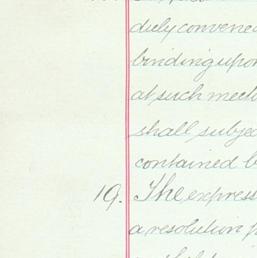 duly convene
binding upon
at such meet
shall subje
contained b
19. The express
a resolution p